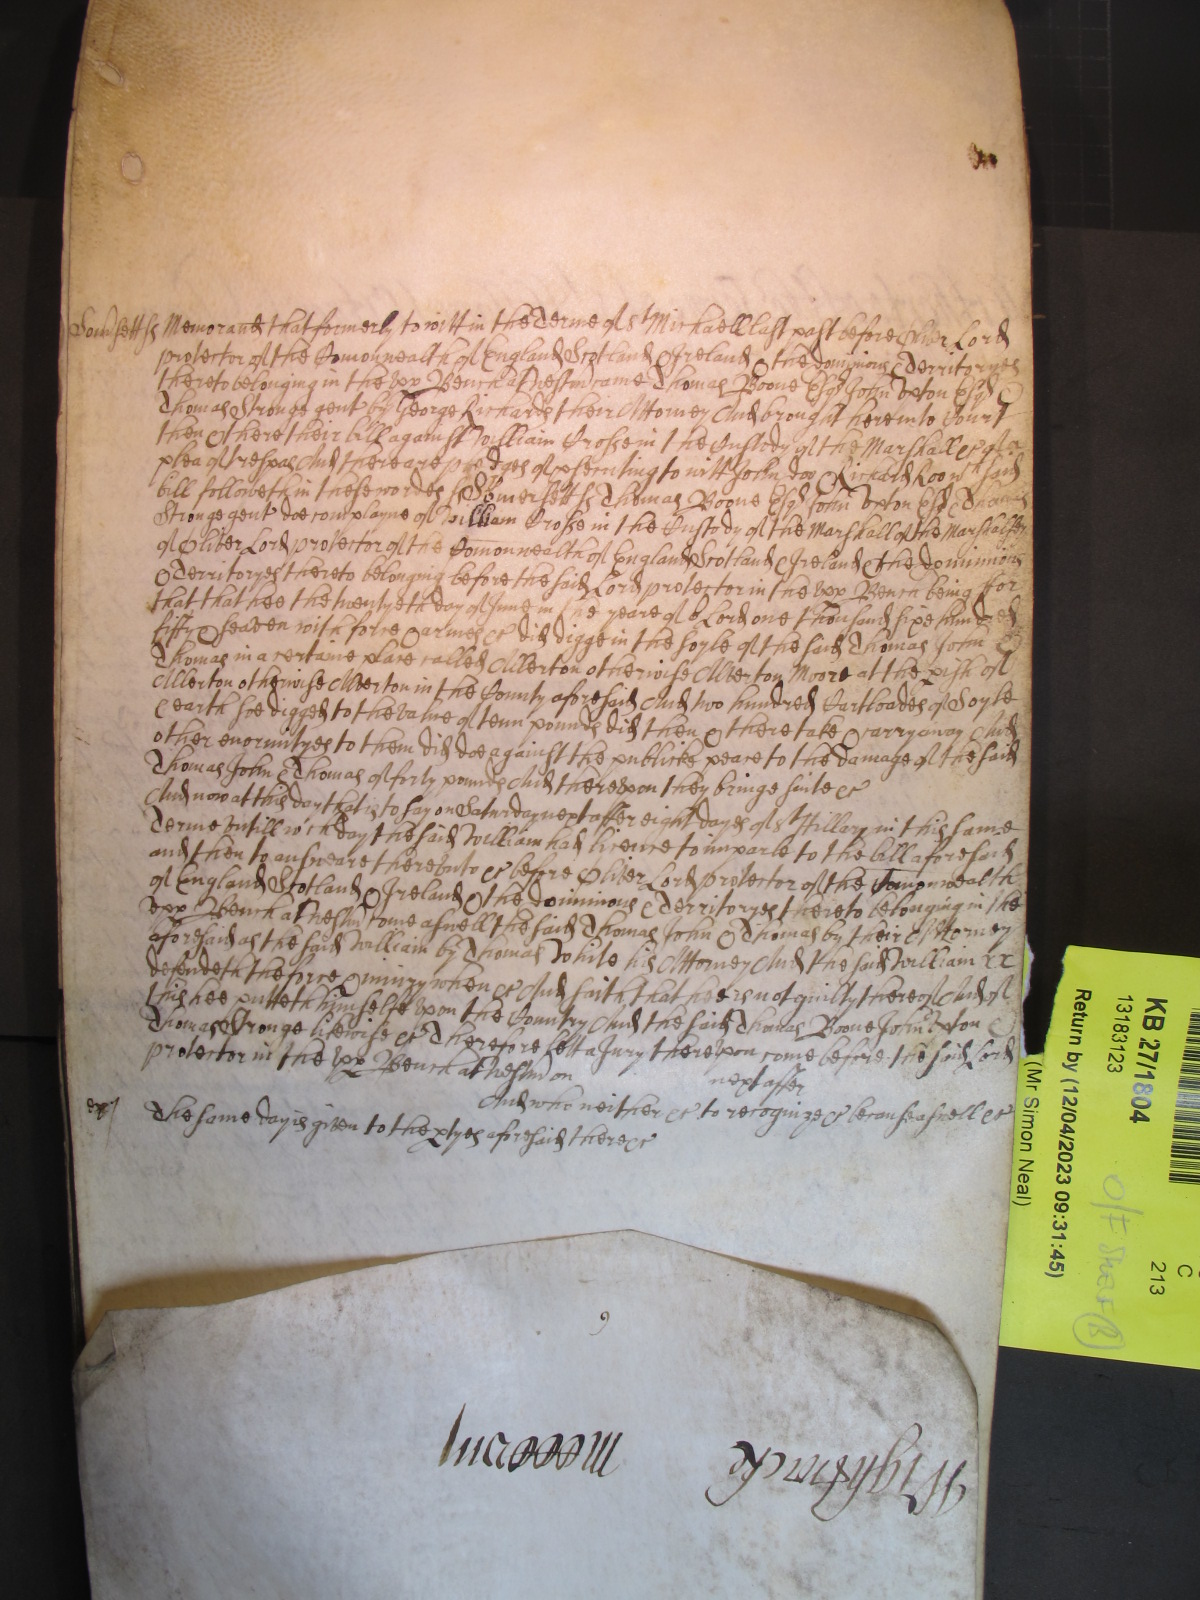 Som̃sett ss Memorand that formerly to witt in the Terme of St Michaell last past before Oliver Lord
protector of the Com̃onwealth of England Scotland & Ireland & the dominions & Territoryes
thereto belonging in the upp Bench at Westm̃ came Thomas Boone Esqr John Esqr &
Thomas Stronge gent by George Richards their Attorney And brought here into Court
then & there their bill against William Crosse in the Custody of the Marshall &c of a
plea of trespas And there are pledges of p̱secuting to witt John doo & Richard Roo wch said
bill followeth in these wordes ss Somersett ss Thomas Boone Esqr John Esqr & Thomas
Stronge gent doe complayne of William Crosse in the Custody of the Marshall of the Marshalsey
of Oliver Lord protector of the Com̃onwealth of England Scotland & Ireland & the dominions
& Territoryes thereto belonging before the said Lord protector in the upp Bench being for
that that hee the twentyeth day of June in the yeare of or Lord one thousand sixe hundred
fifty & seaven with force & armes &c did digge in the soyle of the said Thomas John &
Thomas in a certaine place called Allerton otherwise Alverton Moore at the p̱ish of
Allerton otherwise Alverton in the County aforesaid And two hundred Cartloades of Soyle
& earth soe digged to the value of tenn pounds did then & there take & carry away And
other enormityes to them did doe against the publicke peace to the damage of the said
Thomas John & Thomas of forty pounds And thereupon they bringe suite &c
And now at this day that is to say on Saturday next after eight dayes of St Hillary in this same
Terme untill wch day the said William had licence to imparle to the bill aforesaid
and then to answeare thereunto &c before Oliver Lord protector of the Com̃onwealth
of England Scotland & Ireland & the dominions & Territoryes thereto belonging in the
upp Bench at Westm̃ come aswell the said Thomas John & Thomas by their Attorney
aforesaid as the said William by Thomas White his Attorney And the said William
defendeth the force & iniury when &c And saith that he is not guilty thereof And of
this hee putteth himselfe upon the Country And the said Thomas Boone John &
Thomas Stronge likewise &c Therefore lett a Jury thereupon come before the said Lord
protector in the upp Bench at Westm̃ on next after
And who neither &c to recognize &c because aswell &c
The same day is given to the p̱tyes aforesaid there &c
9
Wightwicke
KB 27/1804
13183123
Return by (12/04/2023 09:31:45)
(Mr Simon Neal)
C
213